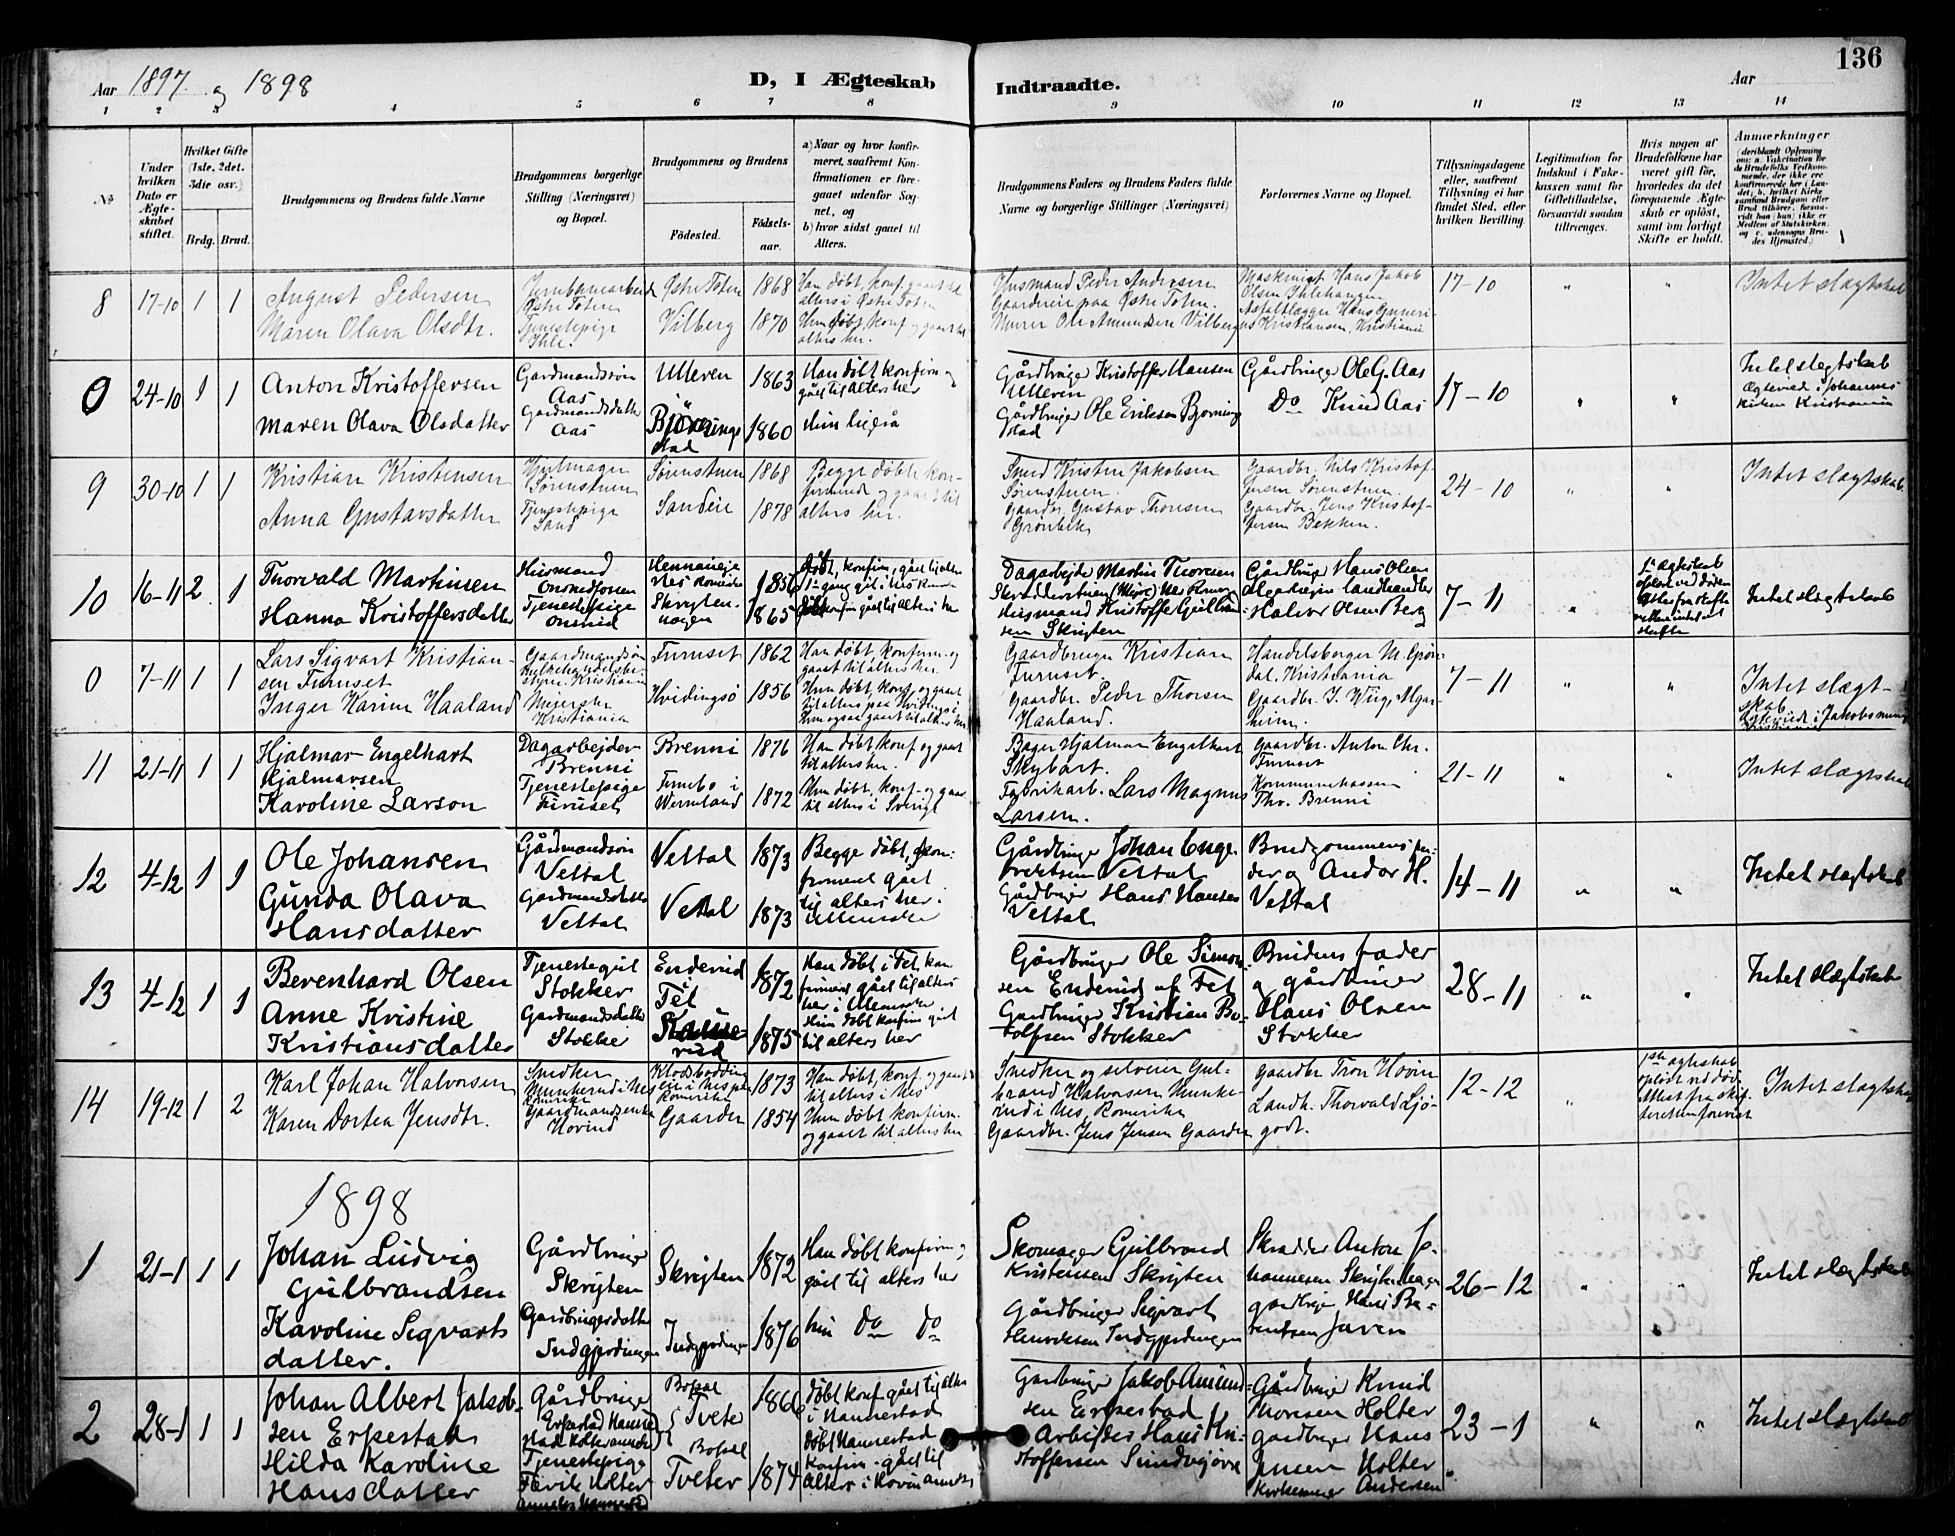 136
Aar 1897 og 1898
D, I Ægteskab
Indtraadte.
Aar
1 2 3 4 5 6 7 8 9 10 11 12 13 14
№
Under
hvilken
Dato er
Ægte-
skabet
stiftet.
Hvilket Gifte
(1ste, 2det.
3die osv.)
Brdg. Brud.
Brudgommens og Brudens fulde Navne
Brudgommens borgerlige
Stilling (Næringsvei)
og Bopæl.
Brudgommens og Brudens
Fødested.
Fødsels-
aar.
a) Naar og hvor konfir-
meret, saafremt Kon-
firmationen er fore-
gaaet udenfor Sog-
net, og
b) hvor sidst gaaet til
Alters.
Brudgommens Faders og Brudens Faders fulde
Navne og borgerlige Stillinger (Næringsvei)
Forlovernes Navne og Bopæl.
Tillysningsdagene
eller, saafremt
Tillysning ei har
fundet Sted, efter
hvilken Bevilling
Legitimation for
Indskud i Fake-
kassen samt for
Giftetilladelse,
forsaavidt saadan
tiltrænges.
Hvis nogen af
Brudefolkene har
været gift før,
hvorledes da det
foregaaende Ægte-
skab er opløst,
samt om lovligt
Skifte er holdt.
Anmærkninger
8 17-10 1 1
August Pedersen
Maren Olava Olsdtr.
Jernbanearbeid
Østre Toten
Tjenestepige
Ihle.
Østre Toten 1868
Vilberg 1870
Han døbt, konf. gaaet til
alters i Østre Toten
Hun døbt, konf. og gaaet til
alters her.
Husmand Peder Andersen
Gaardeie paa Østre Toten.
Murer Ole Amundsen Vilberg
Maskinist Hans Jakob
Olsen Ihlehaugen
Asfaltlægger Hans Gunneri-
us Kristiansen, Kristiania
17-10
Intet slægtskab
0 24-10 1 1
Anton Kristoffersen
Maren Olava Olsdatter
Gardmandssøn
Aas
Gardmandsdatter
Aas
Ulleren 1863
Bjørnings
stad 1860
Han døbt konfirm og
gået til alters her
hun ligeså
Gårdbruger Kristoffer Hansen
Ulleren
Gårdbruger Ole Eriksen Bjørning
stad
Gårdbruger Ole G. Aas
Do Knud Aas
17-10
Intet slægtskab
Ægteviet i Johannes
kirken Kristiania
9 30-10 1 1
Kristian Kristensen
Anna Gustavsdatter
Hjulmager
Sørenstuen
Tjenestepige
Sand
Sørenstuen 1868
Sandeie 1878
Begge døbt kon-
firmered og gaaet til
alters her.
Smed Kristen Jakobsen
Sørenstuen.
Gaardbr. Gustav Thoresen
Grønbek
Gaardbr. Nils Kristof-
fersen Sørenstuen.
Gaardbr. Jens Kristof-
fersen Bekken.
24-10
Intet slægtskab
10 16-11 2 1
Thorvald Martinsen
Hanna Kristoffersdatter
Husmand
Tjenestepige
Hennaneje
Nes Romerike 1856
Skrigten-
hagen 1865
døbt, konfirm, gået til alters
døbt konfirm gået til alters her
Dagarbejder Martin Thoresen
Husmand Kristoffer Gulbran-
sen Skrigten
Gårdbruger Hans Olsen
Halvor Olsen Berg
7-11
Intet slægtskab
0 7-11 1 1
Lars Sigvart Kristian-
sen Furuset
Inger Karine Haaland
Gaardmandssøn
Kristiania
Meierske
Kristiania
Furuset 1862
Hvidingsø 1856
Han døbt, konfirm. og
gaaet til alters her.
Hun døbt, konf. og gaaet
til alters paa Hvidingsø
Hun ogsaa gaaet til alters her
Gaardbruger Kristian
Furuset.
Gaardbr. Peder Thorsen
Haaland.
Handelsborger M. Grøn-
dal, Kristiania
Gaardbr. J. Wiig, Algar-
heim.
7-11
Intet slægt-
skab
11 21-11 1 1
Hjalmar Engelhart
Hjalmarsen
Karoline Larson
Dagarbejder
Brenni
Tjenestepige
Furuset
Brenni 1876
Wermland 1872
Han døbt, konf. og gaaet
til alters her.
Hun døbt, konf. og gaaet
til alters i Sverige
Bager Hjalmar Engelhart
Skybart.
Fabrikarb. Lars Magnus
Larsen.
Gaardbr. Anton Chr.
Furuset
Kommunekasserer
Thv. Brenni
21-11
Intet slægtskab
12 4-12 1 1
Ole Johansen
Gunda Olava
Hansdatter
Gårdmandssøn
Vettal
Gardmandsdatter
Vettal
Vettal 1873
Vettal 1873
Begge døbt, kon-
firmeret gået
til alters her.
Gårdbruger Johan Enge-
bretsen Vettal
Gårdbruger Hans Hansen
Vettal
Brudgommens fa-
der og Andor H.
Vettal
14-11
Intet slægtskab
13 4-12 1 1
Berenhard Olsen
Anne Kristine
Kristiansdatter
Tjenestegut
Stokker
Gardmandsdatter
Stokke
Enderud
Fet 1872
1875
Han døbt i Fet, kon
firmeret gået til alters
her
Hun døbt konfirm gået
til alters her
Gårdbruger Ole Simon-
sen Enderud af Fet
Gardbruger Kristian Bo-
tolfsen Stokker
Brudens fader
og gårdbruger
Hans Olsen
Stokker
28-11
Intet slægtskab
14 19-12 1 2
Karl Johan Halvorsen
Karen Dortea Jensdtr.
Smedker
Munkerud i Nes
Romerike
Gaardmandsenke
Hovind
Romerike 1873
Gaarder 1854
Han døbt, konf. og gaaet
til alters i Nes
Hun døbt, konfirm.
og gaaet til alters her
Smedker og selveier Gul-
brand Halvorsen Munke-
rud i Nes, Romerike
Gaardbr. Jens Jensen Gaarder
Gaardbr. Tron Hovin
Landh. Thorvald Ljø-
godt.
12-12
1ste ægteskab
opløst ved død.
Attest fra skif-
teretten forevist
Intet slægtskab
1898
1 21-1 1 1
Johan Ludvig
Gulbrandsen
Karoline Sigvarts
datter.
Gårdbruger
Skrigten
Gardbrugersdatter
Indgjerdingen
Skrigten 1872
Indgjerdingen 1876
Han døbt konfirm og
gået til alters her
hun do do
Skomager Gulbrand
Kristensen Skrigten
Gårdbruger Sigvart
Henriksen Indgjerdingen
Skrædder Anton Jo-
hannesen Skrigtenhagen
gardbruger Hans Be-
rentsen Jaren
26-12
Intet slægtskab
2 28-1 1 1
Johan Albert Jakob-
sen Erpestad
Hilda Karoline
Hansdatter
Gårdbruger
Erpestad Nanne
stad
Tjenestepige
Holter
Bopæl
Tveter 1866
Bopæl
Tveter 1874
døbt konf gået til alters
i Nannestad
døbt Nannestad
konfirm. gået til
alters i Hovin
Gardbruger Jakob Amund-
sen Erpestad
Arbeider Hans Kri-
stoffersen Sundbyjøre
Gårdbruger Knud
Thoresen Holter
gardbruger Hans
Jensen Holter
Andersen
23-1
Intet slægtskab